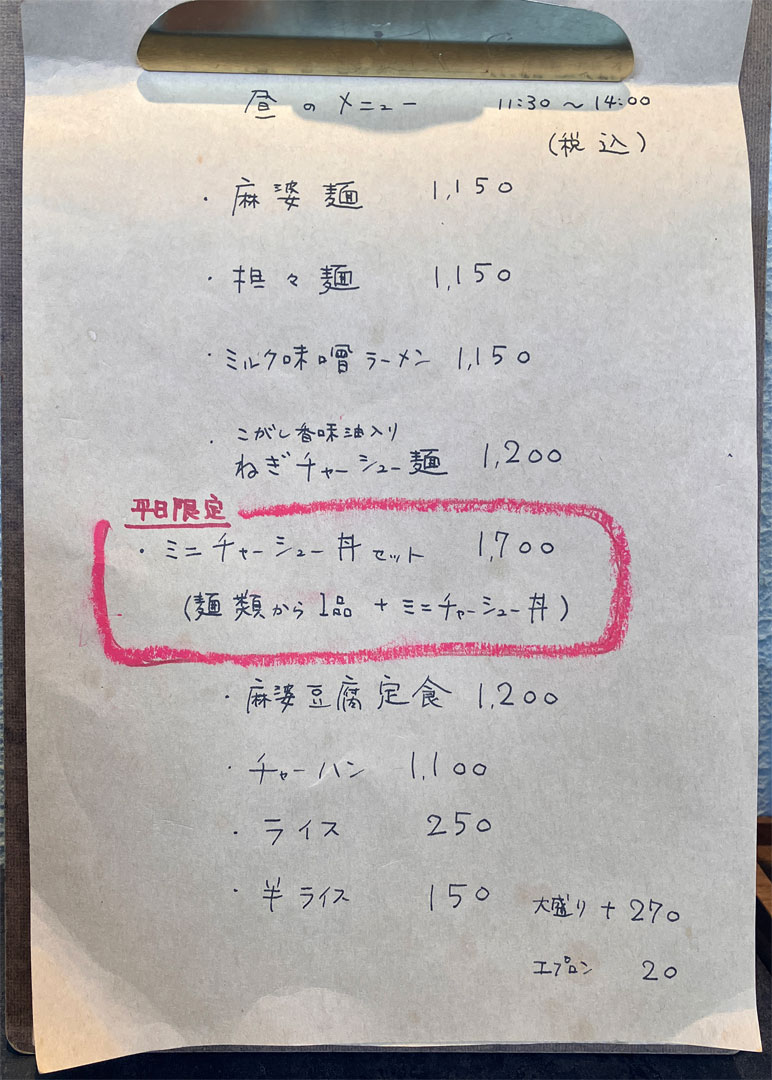 昼のメニュー 11:30～14:00
(税込)
・麻婆麺 1,150
・担々麺 1,150
・ミルク味噌ラーメン 1,150
・こがし香味油入り
ねぎチャーシュー麺 1,200
平日限定
・ミニチャーシュー丼セット 1,700
(麺類から1品 + ミニチャーシュー丼)
・麻婆豆腐定食 1,200
・チャーハン 1,100
・ライス 250
・半ライス 150
大盛り + 270
エプロン 20